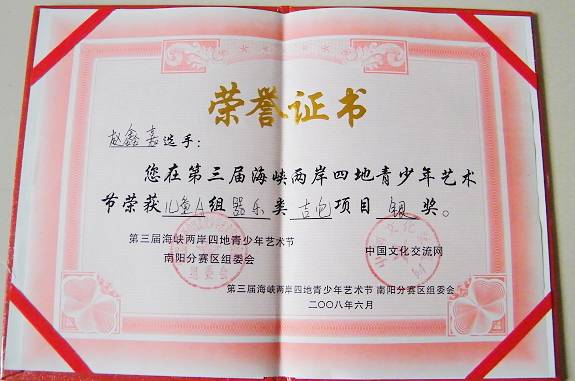 荣誉证书
赵鑫嘉选手：
您在第三届海峡两岸四地青少年艺术
节荣获儿童A组器乐类吉他项目银奖。
第三届海峡两岸四地青少年艺术节
南阳分赛区组委会
中国文化交流网
第三届海峡两岸四地青少年艺术节 南阳分赛区组委会
二〇〇八年六月